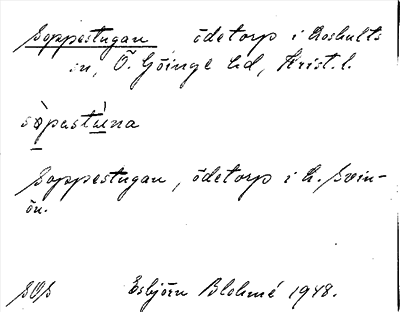 Soppestugan ödetorp i Loshults
sn, Ö. Göinge hd, Krist. l.
sòpastu̇na
Soppestugan, ödetorp i L. Svin-
ön.
SOS Esbjörn Blohmé 1948.